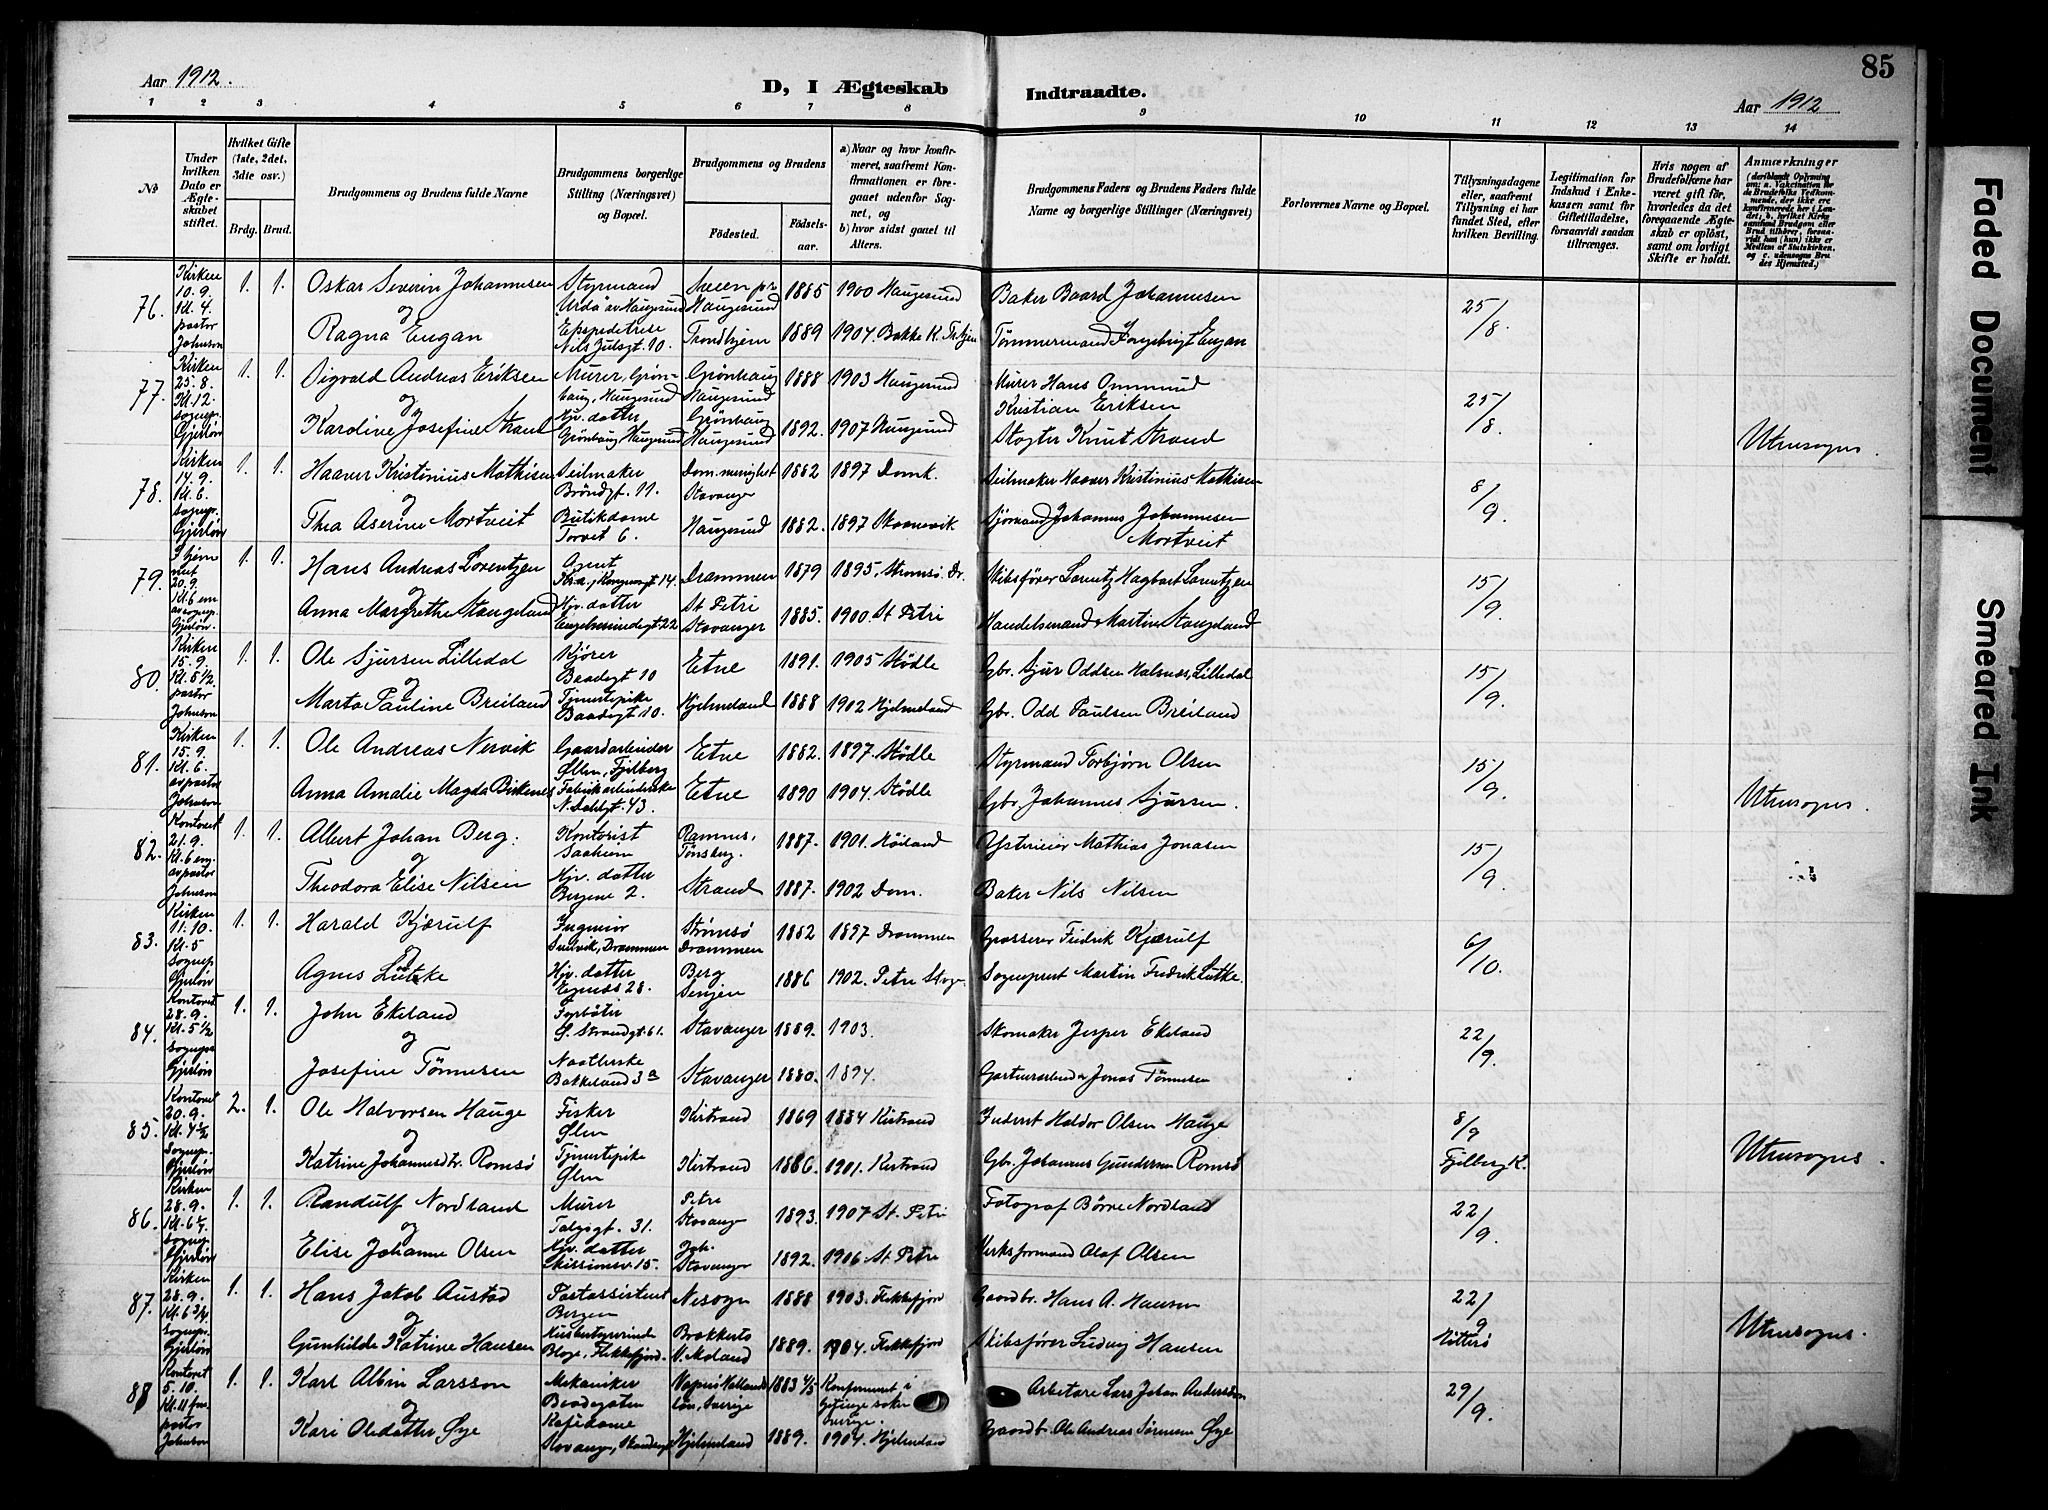 Aar 1912.
D, I Ægteskab
Indtraadte.
85
Aar 1912
1 2 3 4 5 6 7 8 9 10 11 12 13 14
№
Under hvilken Dato er Ægteskabet stiftet.
Hvilket Gifte (1ste, 2det, 3die osv.)
Brdg. Brud.
Brudgommens og Brudens fulde Navne
Brudgommens borgerlige Stilling (Næringsvei) og Bopæl.
Brudgommens og Brudens
Födested.
Födselsaar.
a) Naar og hvor konfirmeret, saafremt Konfirmationen er foregaaet udenfor Sognet, og
b) hvor sidst gaaet til Alters.
Brudgommens Faders og Brudens Faders fulde Navne og borgerlige Stillinger (Næringsvei)
Forlovernes Navne og Bopæl.
Tillysningsdagene eller, saafremt Tillysning ei har fundet Sted, efter hvilken Bevilling.
Legitimation for Indskud i Enkekassen samt for Giftetilladelse, forsaavidt saadan tiltrænges.
Hvis nogen af Brudefolkene har været gift för, hvorledes da det foregaaende Ægteskab er oplöst, samt om lovligt Skifte er holdt.
Anmærkninger
76. Kirken 10.9. Kl. 4. pastor Johnson 1. 1. Oskar Severin Johannesen Styrmand Haugesund 1885 1900 Haugesund Baker Baard Johannesen 25/8.
og
Ragna Engan Nils Julsgt. 10. Trondhjem 1889 1904 Bakke K. Tr.hjem Tömmermand Engan
77. Kirken 25.8. Kl. 12. sognepr. Gjerlöv 1. 1. Sigvald Andreas Eriksen Murer, Grönhaug, Haugesund Grönhaug Haugesund 1888 1903 Haugesund Murer Hans Ommund Kristian Eriksen 25/8.
og
Karoline Josefine Strand Hjv. datter Grönhaug Haugesund Grönhaug Haugesund 1892. 1907 Haugesund Knut Strand Utensogns.
78. Kirken 14.9. Kl. 6. sognepr. Gjerlöv 1. 1. Haaver Kristinius Mathisen Seilmaker Bröndgt. 11. Dom. menighet Stavanger 1882 1897 Domk. Seilmaker Haaver Kristinius Mathisen 8/9.
og
Thea Aserine Mortveit Butikdame Torvet 6. Haugesund 1882. 1897 Skaanevik Sjömand Johannes Johannesen Mortveit
79. 20.9. Kl. 6 em av sognepr. Gjerlöv. 1. 1. Hans Andreas Lorentzen Agent Drammen 1879 1895. Strømsø. Dr. Skibsförer Lorentz Hagbart Lorentzen 15/9.
og
Anna Margrethe Stangeland Hjv. datter St. Petri Stavanger 1885. 1900. St. Petri Handelsmand Martin Stangeland
80. Kirken 15.9. Kl. 5 1/2 pastor Johnson 1. 1. Ole Sjursen Lilledal Kjörer Baadegt 10 Etne 1891. 1905 Stødle Gbr. Sjur Oddsen Lilledal 15/9.
og
Marta Pauline Breiland Tjenestepike Baadegt. 10. Hjelmeland 1888 1902 Hjelmeland Gbr. Odd Paulsen Breiland
81. Kirken 15.9. Kl. 6. av pastor Johnson 1. 1. Ole Andreas Nervik Gaardarbeider Ølen, Fjelberg Etne 1882. 1897. Stødle Styrmand Torbjørn Olsen 15/9.
Anna Amalie Magda Birkenes Fabrikarbeiderske N. Dahlsgt. 43. Etne 1890 1904. Stødle Gbr. Johannes Sjursen. Utensogns.
82. Kontoret 21.9. Kl. 6 em. av pastor Johnson 1. 1. Albert Johan Berg. Kontorist Ramnes, Tönsberg. 1887. 1901. Höiland Mathias Jonasen 15/9.
og
Theodora Elise Nilsen Hjv. datter Bergene 2. Strand 1887. 1902 Dom. Baker Nils Nilsen
83. Kirken 11.10. Kl. 5 sognepr Gjerlöv 1. 1. Harald Kjærulf Ingeniör Drammen Strømsø Drammen 1882 1897 Drammen Grosserer Fredrik Kjærulf 6/10.
og
Agnes Lütke Hjv. datter Egenes 28. Berg Senjen 1886 1902. Petri Stvgr. Sogneprest Martin Fredrik Lütke.
84. Kontoret 28.9. Kl. 5 1/2 sognepr. Gjerlöv 1. 1. John Ekeland Fyrböter Ø. Strandgt. 61. Stavanger 1889. 1903. Skomaker Jesper Ekeland 22/9.
og
Josefine Tönnesen Naatlerske Bakkeland 3a Stavanger 1880. 1894. Jonas Tönnesen
85. Kontoret 20.9. Kl. 4 1/2 Sognepr. Gjerlöv 2. 1. Ole Halvorsen Hauge Fisker Ølen Kistrand 1869 1884 Kistrand Inderst Haldor Olsen Hauge 8/9 Fjelberg K.
og
Katrine Johannesdtr. Romsö Tjenestepike Ølen Kistrand 1886. 1901. Kistrand Gbr. Johannes Gundersen Romsö Utensogns.
86. Kirken 28.9. Kl. 6 1/4 sognepr. Gjerlöv 1. 1. Randulf Nordland Murer Talgögt. 31. Petri Stavanger 1893. 1907 St. Petri Fotograf Börre Nordland 22/9.
og
Elise Johanne Olsen Hjv. datter Missionsv. 15. Joh. Stavanger 1892. 1906 St. Petri Verksformand Olaf Olsen
87. Kirken 28.9. Kl. 6 3/4 sognepr. Gjerlöv 1. 1. Hans Jakob Austad Postassistent Bergen Nesogn 1888 1903. Flekkefjord Gaardbr. Hans A. Hansen 22/9 Hitterö
og
Gunhilde Katrine Hansen Husbestyrerinde Flekkefjord. V. Moland 1889. 1904. Flekkefjord Skibsförer Ludvig Hansen Utensogns.
88 Kontoret 5.10. Kl. 11 fm. pastor Johnson 1. 1. Karl Albin Larsson Mekaniker Baadegaten Sverige 1883 4/5 Konfirmeret i Sverige. Arbetare Lars Johan Andersson 29/9.
og
Kari Olesdatter Øye Kafédame Stavanger, Hjelmeland 1889. 1904. Hjelmeland Gaardbr. Ole Andreas Tönnesen Øye
Faded Document
Smeared Ink